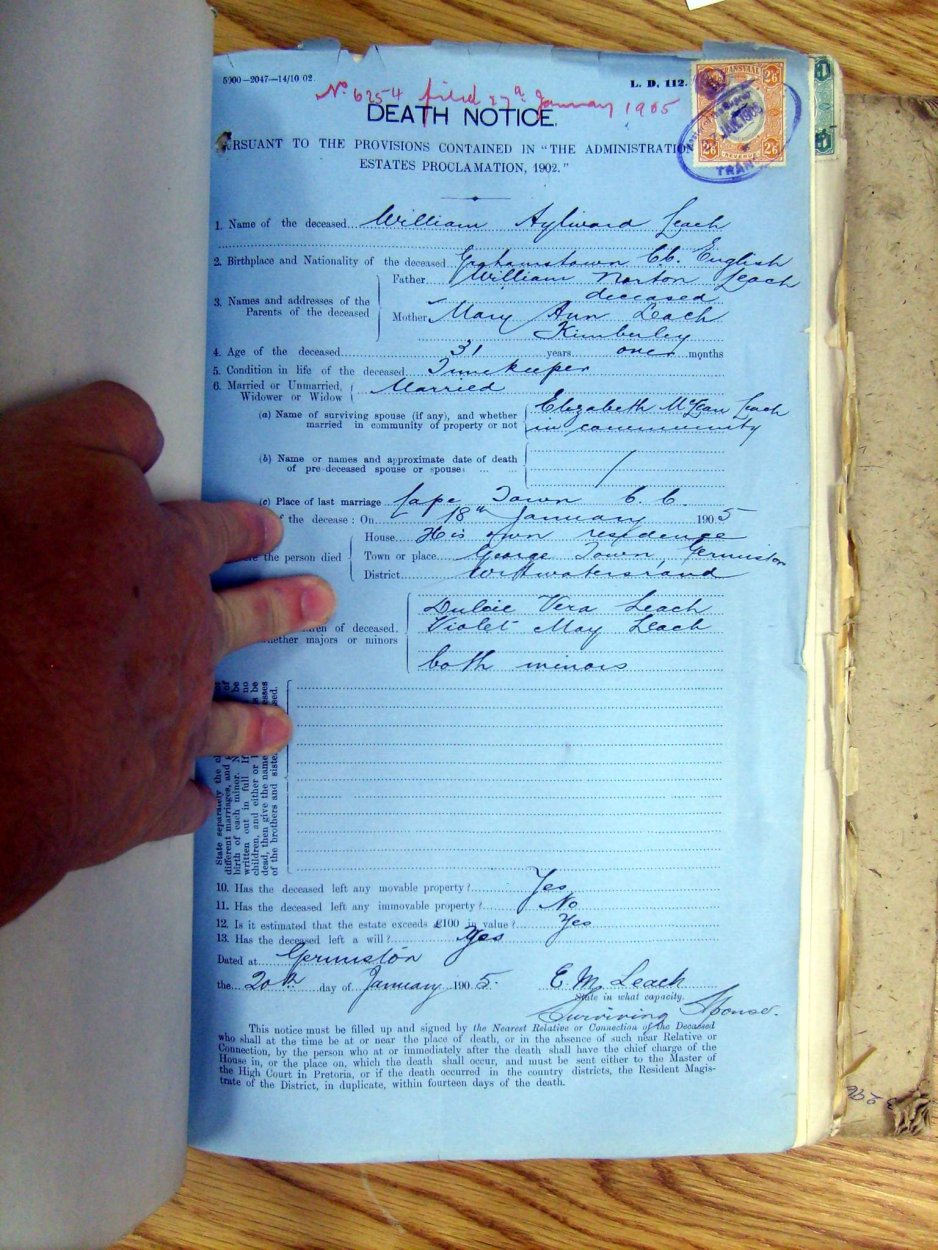 5900—2047—14/10 02. L. D. 112.
No 6254 filed 27th January 1905
DEATH NOTICE.
RSUANT TO THE PROVISIONS CONTAINED IN "THE ADMINISTRATION
ESTATES PROCLAMATION, 1902."
TRANSVAAL
2/6
JAN 1905
REVENUE
2/6 2/6
TRAN
1. Name of the deceased William Aylward Leach
2. Birthplace and Nationality of the deceased Grahamstown CC. English
Father William Norton Leach
deceased
3. Names and addresses of the
Parents of the deceased
Mother Mary Ann Leach
Kimberley
4. Age of the deceased 31 years over months
5. Condition in life of the deceased Timekeeper
6. Married or Unmarried, Married
Widower or Widow
(a) Name of surviving spouse (if any), and whether Elizabeth McLean Leach
married in community of property or not in community
(b) Name or names and approximate date of death
of pre-deceased spouse or spouses ... ... /
(c) Place of last marriage Cape Town C. C.
of the decease: On 18th January 1905
House His own residence
re the person died Town or place George Town Germiston
District Witwatersrand
Dulcie Vera Leach
ren of deceased. Violet May Leach
hether majors or minors
both minors
State separately the c
different marriages, and
birth of each minor. N
written out in full. If
children, and either or
dead, then give the name
of the brothers and siste
of
be
no
be
esses
sed.
10. Has the deceased left any movable property? Yes
11. Has the deceased left any immovable property? No
12. Is it estimated that the estate exceeds £100 in value? Yes
13. Has the deceased left a will? Yes
Dated at Germiston
the 20th day of January 1905. E. M. Leach
State in what capacity.
Surviving Spouse.
This notice must be filled up and signed by the Nearest Relative or Connection of the Deceased
who shall at the time be at or near the place of death, or in the absence of such near Relative or
Connection, by the person who at or immediately after the death shall have the chief charge of the
House in, or the place on, which the death shall occur, and must be sent either to the Master of
the High Court in Pretoria, or if the death occurred in the country districts, the Resident Magis-
trate of the District, in duplicate, within fourteen days of the death.